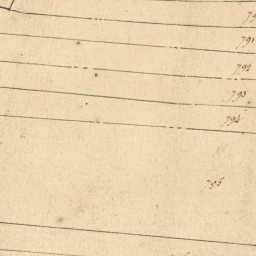 791
792
793
794
795